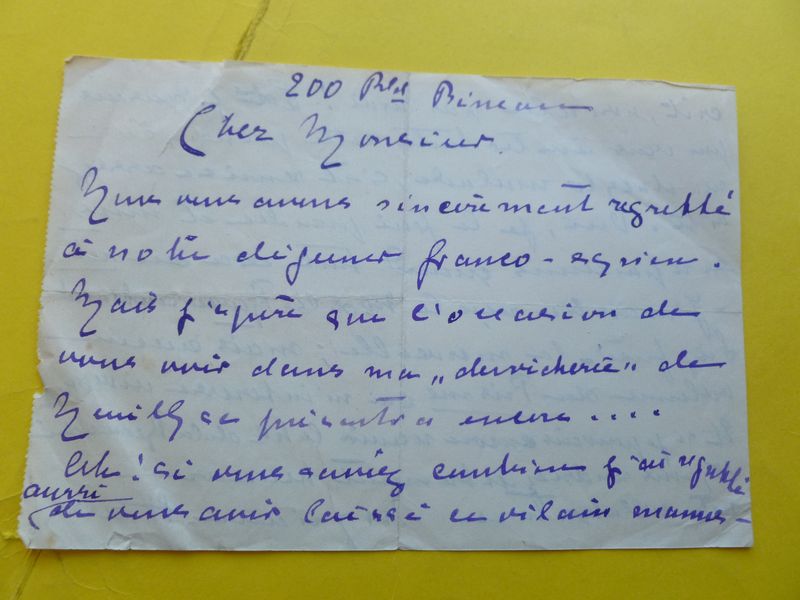 200 Bld Bineau
Cher Monsieur
Nous vous avons sincèrement regretté
à notre déjeuner franco-syrien.
Mais j'espère que l'occasion de
vous voir dans ma „dervicherie" de
Neuilly se présentera encore....
Ah! si vous saviez combien j'ai regretté
aussi
de vous avoir laissé ce vilain manus-